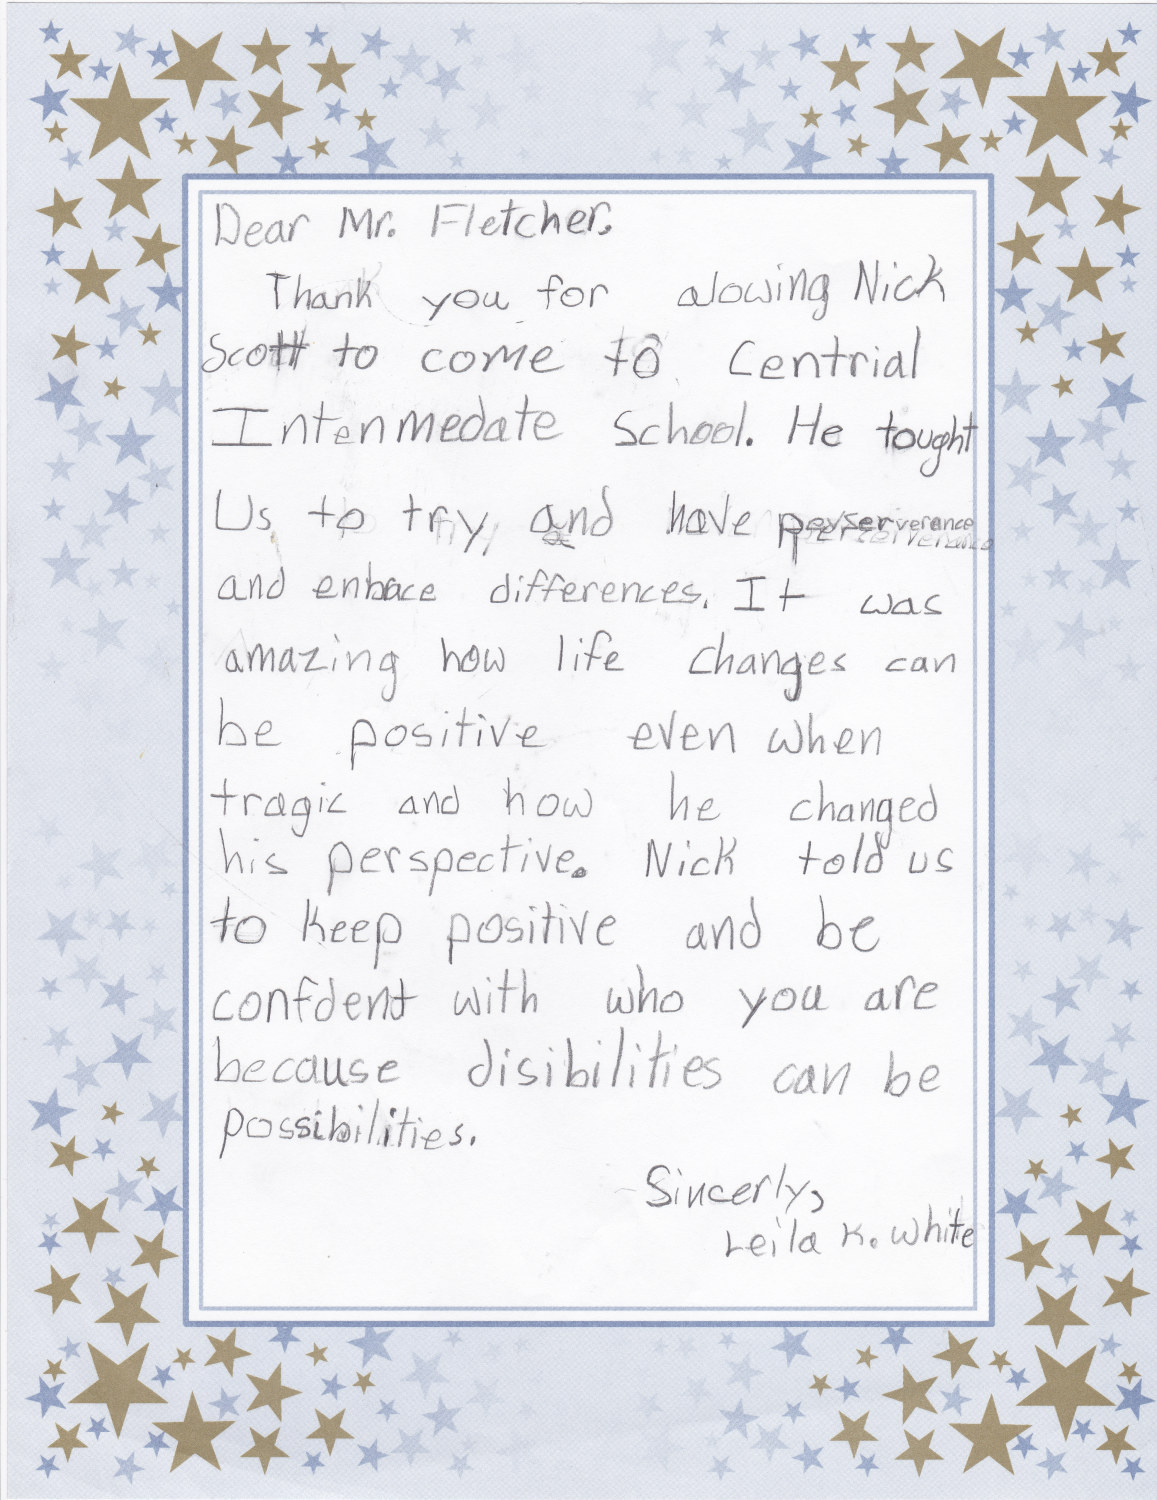 Dear Mr. Fletcher,
Thank you for alowing Nick
Scott to come to Centrial
Intenmedate School. He tought
Us to try and have perserverance
and enbrace differences. It was
amazing how life changes can
be positive even when
tragic and how he changed
his perspective. Nick told us
to keep positive and be
confdent with who you are
because disibilities can be
possibilities.
Sincerly,
Leila K. White